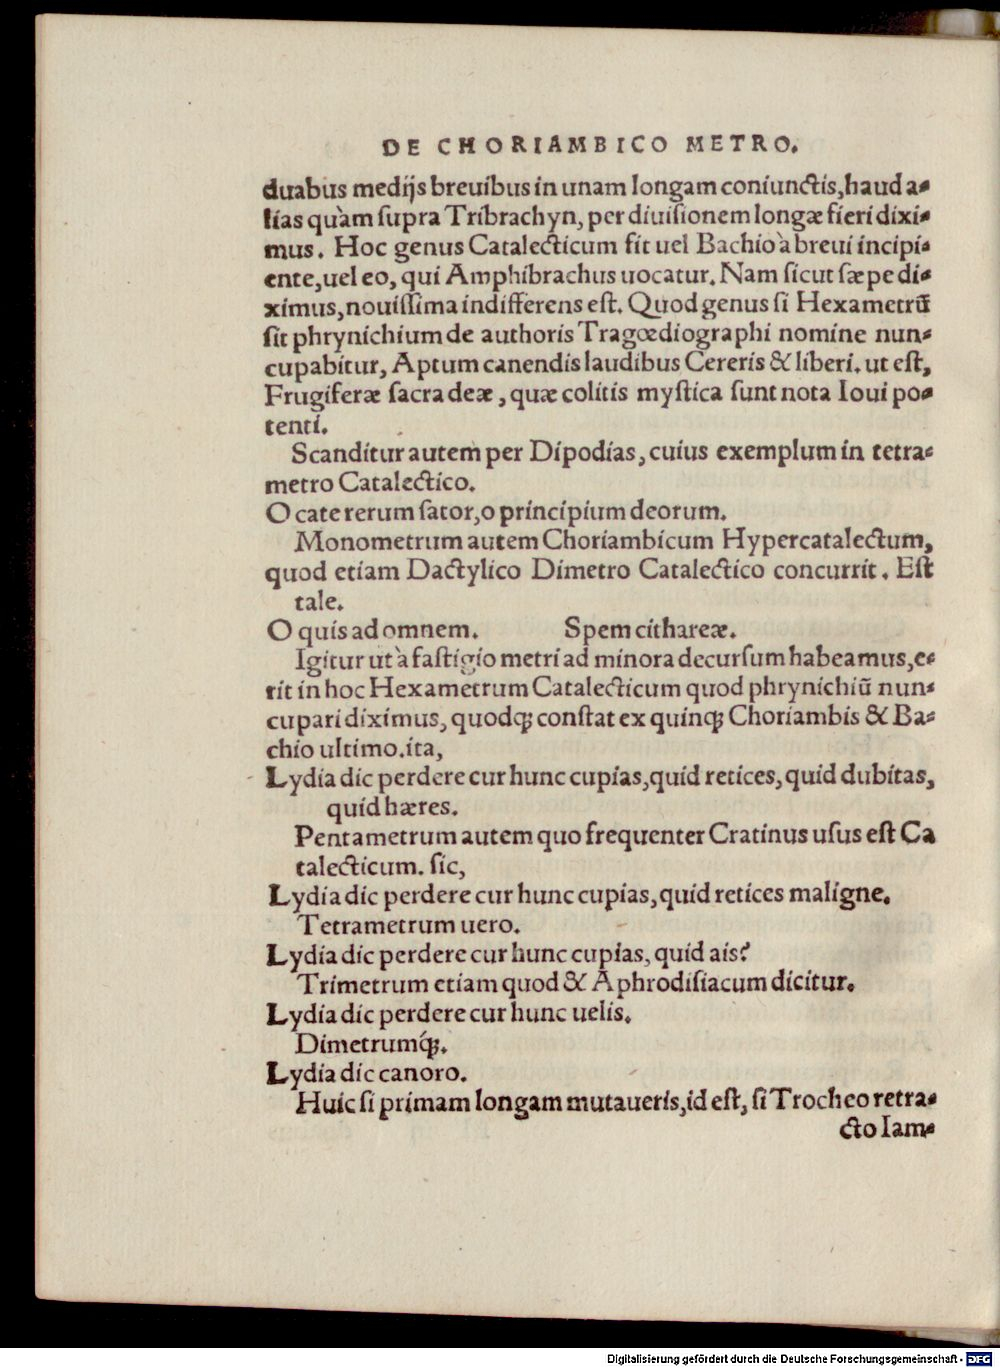 DE CHORIAMBICO METRO.
duabus medijs breuibus in unam longam coniunctis, haud a-
lias quàm supra Tribrachyn, per diuisionem longæ fieri dixi-
mus. Hoc genus Catalecticum fit uel Bachio à breui incipi-
ente, uel eo, qui Amphibrachus uocatur. Nam sicut sæpe di-
ximus, nouissima indifferens est. Quod genus si Hexametrū
sit phrynichium de authoris Tragœdiographi nomine nun-
cupabitur, Aptum canendis laudibus Cereris & liberi. ut est,
Frugiferæ sacra deæ, quæ colitis mystica sunt nota Ioui po-
tenti.
Scanditur autem per Dipodias, cuius exemplum in tetra-
metro Catalectico.
O cate rerum sator, o principium deorum.
Monometrum autem Choriambicum Hypercatalectum,
quod etiam Dactylico Dimetro Catalectico concurrit. Est
tale.
O quis ad omnem. Spem cithareæ.
Igitur ut à fastigio metri ad minora decursum habeamus, e-
rit in hoc Hexametrum Catalecticum quod phrynichiū nun-
cupari diximus, quodq; constat ex quinq; Choriambis & Ba-
chio ultimo. ita,
Lydia dic perdere cur hunc cupias, quid retices, quid dubitas,
quid hæres.
Pentametrum autem quo frequenter Cratinus usus est Ca
talecticum. sic,
Lydia dic perdere cur hunc cupias, quid retices maligne.
Tetrametrum uero.
Lydia dic perdere cur hunc cupias, quid ais?
Trimetrum etiam quod & Aphrodisiacum dicitur.
Lydia dic perdere cur hunc uelis.
Dimetrumq́;.
Lydia dic canoro.
Huic si primam longam mutaueris, id est, si Trocheo retra-
cto Iam-
Digitalisierung gefördert durch die Deutsche Forschungsgemeinschaft - DFG